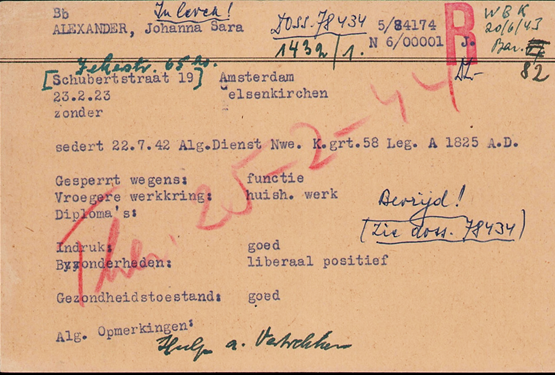 Bb In leven! Doss. 78434 5/84174 R WBK
ALEXANDER, Johanna Sara 1432/1. N 6/00001 J. 20/6/43
Bar.
[Schubertstraat 19] Amsterdam 82
23.2.23 elsenkirchen
zonder
sedert 22.7.42 Alg.Dienst Nwe. K.grt.58 Leg. A 1825 A.D.
Gesperrt wegens: functie
Vroegere werkkring: huish. werk
Diploma's:
Bevrijd!
(Zie doss. 78434)
Ther. 25-2-44
Indruk: goed
Byzonderheden: liberaal positief
Gezondheidstoestand: goed
Alg. Opmerkingen:
Hulp a. Vertrekken